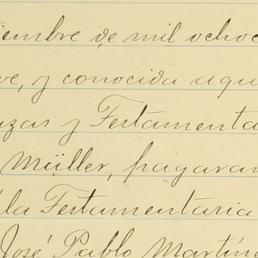 iembre de mil ochoc
ve, y conocida aqu
nzas y Testamenta
Müller, pagaran
la Testamentaria
José Pablo Martín